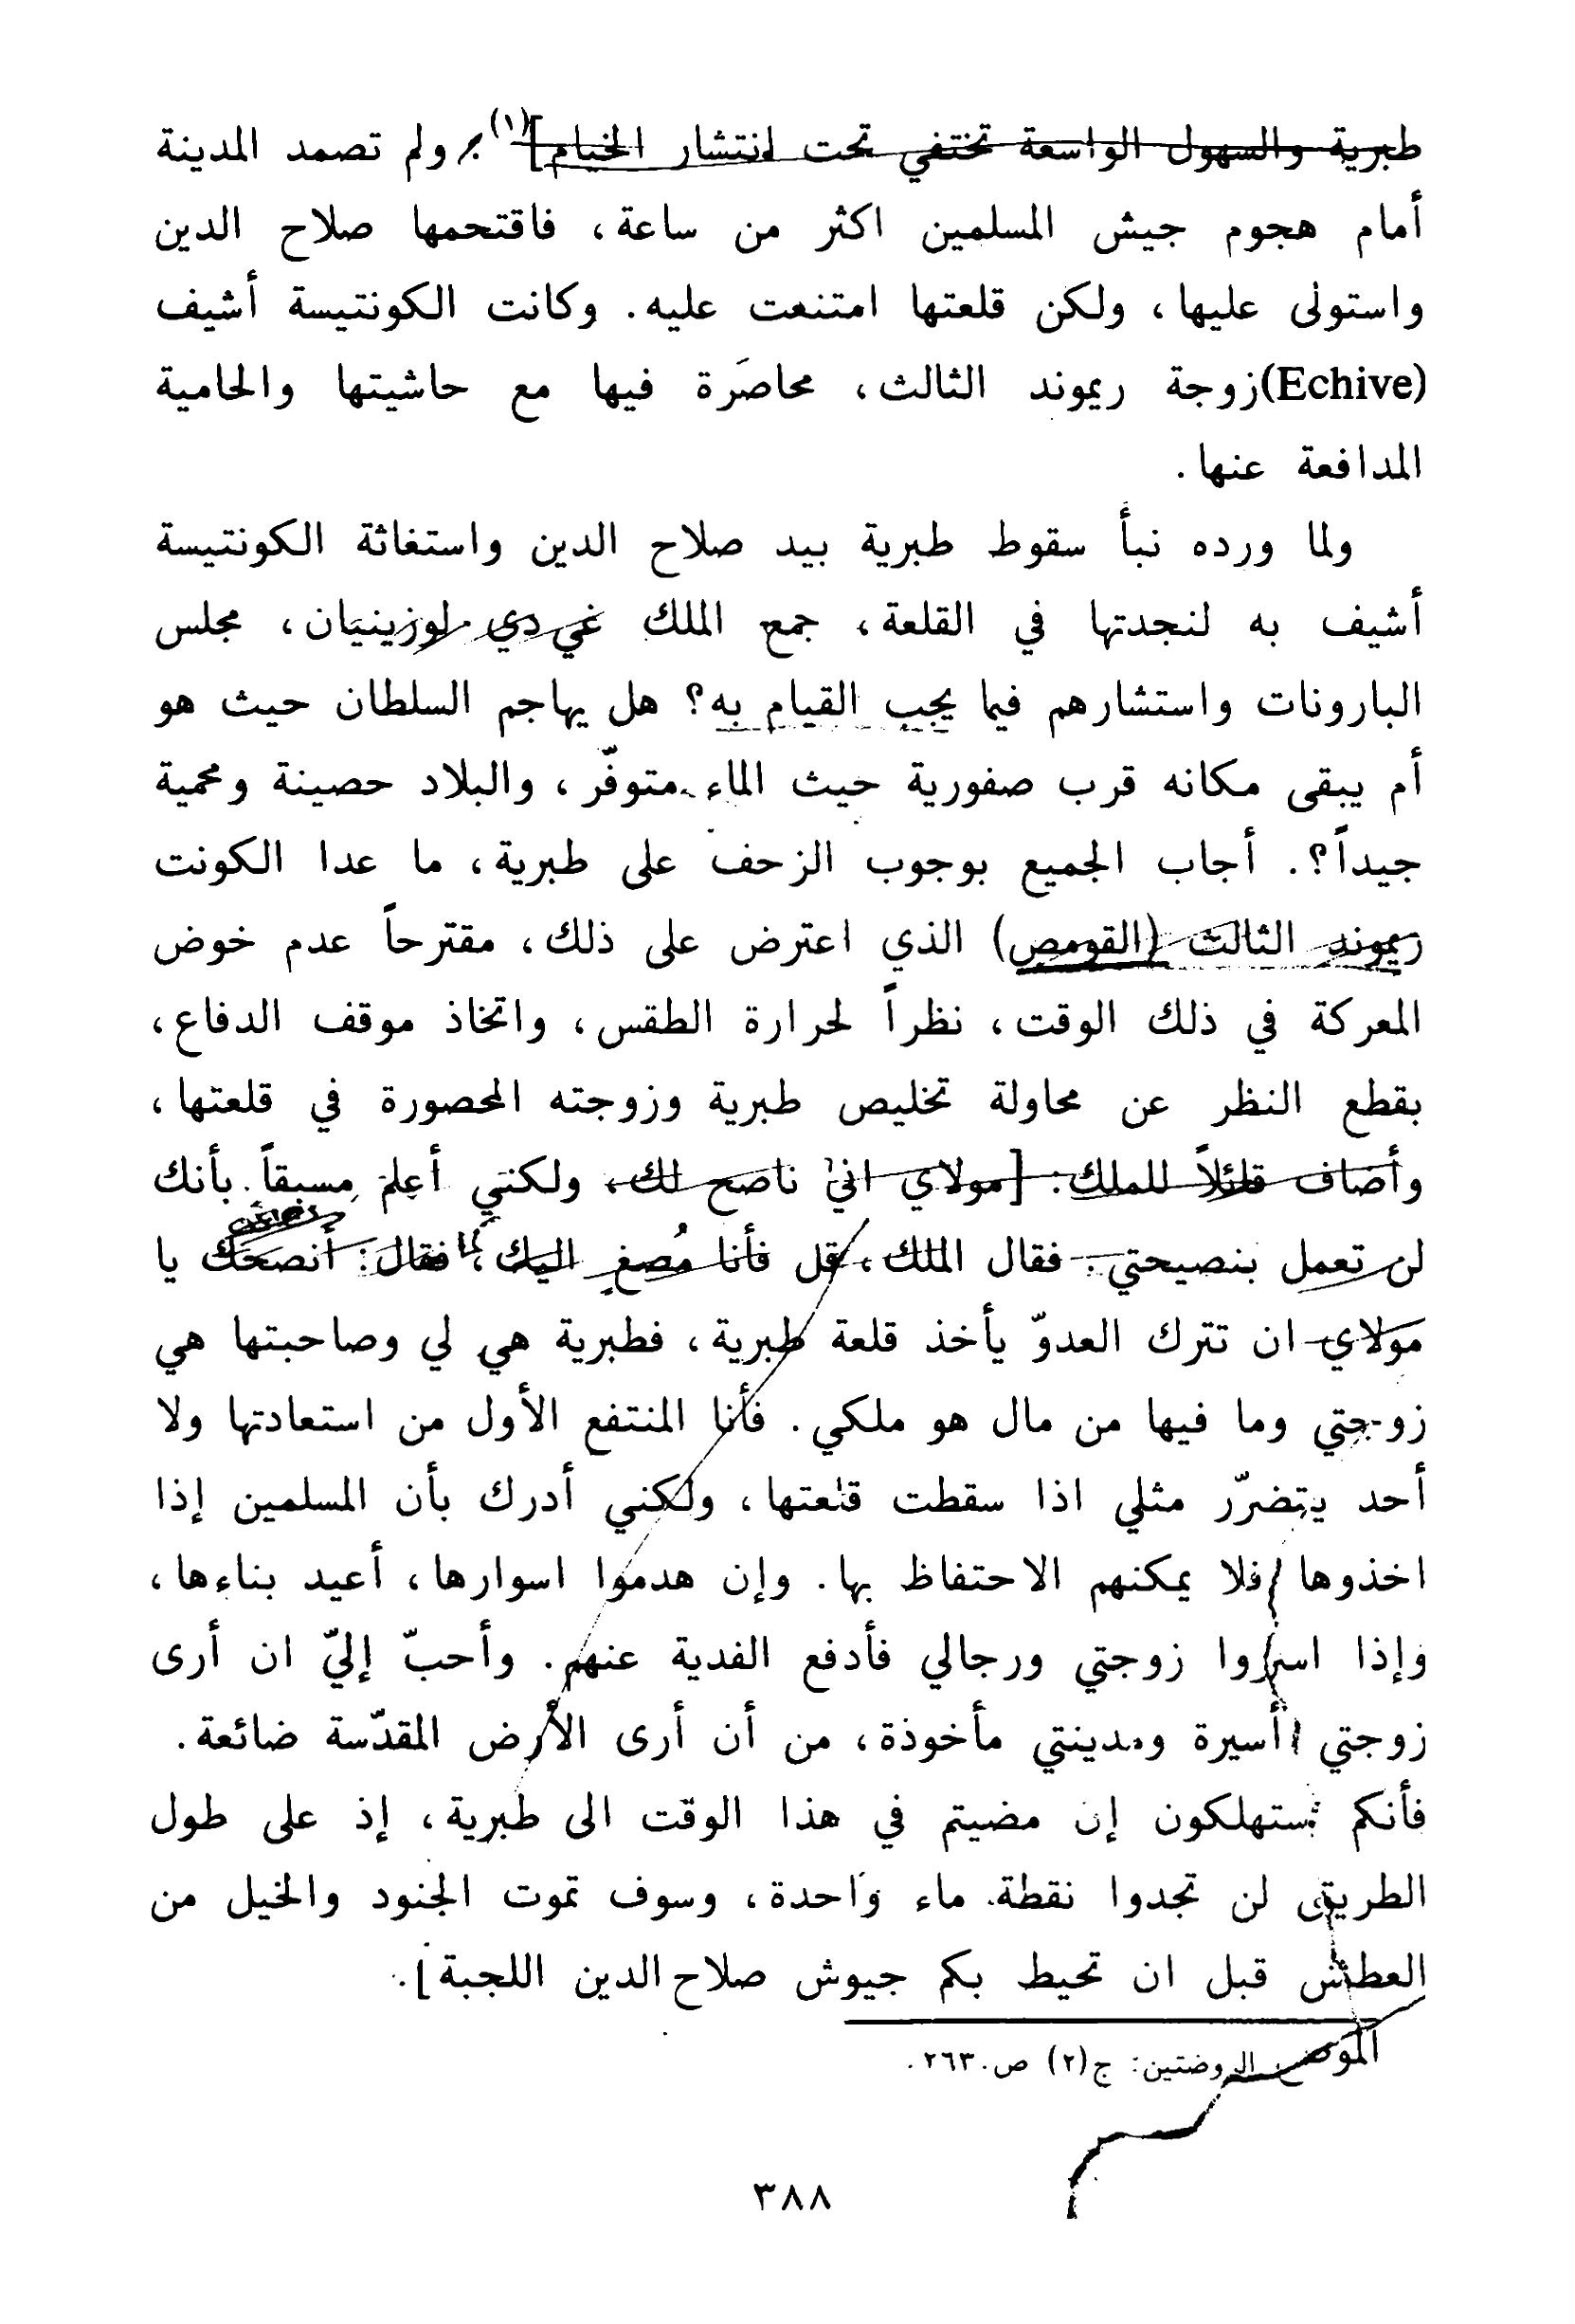 طبرية والسهول الواسعة تختفي تحت انتشار الخيام](١). ولم تصمد المدينة
أمام هجوم جيش المسلمين اكثر من ساعة، فاقتحمها صلاح الدين
واستولى عليها، ولكن قلعتها امتنعت عليه. وكانت الكونتيسة أشيف
(Echive) زوجة ريموند الثالث، محاصَرة فيها مع حاشيتها والحامية
المدافعة عنها.
ولما ورده نبأ سقوط طبرية بيد صلاح الدين واستغاثة الكونتيسة
أشيف به لنجدتها في القلعة، جمع الملك غي دي لوزينيان، مجلس
البارونات واستشارهم فيما يجب القيام به؟ هل يهاجم السلطان حيث هو
أم يبقى مكانه قرب صفورية حيث الماء متوفّر، والبلاد حصينة ومحمية
جيداً؟. أجاب الجميع بوجوب الزحف على طبرية، ما عدا الكونت
ريموند الثالث (القومص) الذي اعترض على ذلك، مقترحاً عدم خوض
المعركة في ذلك الوقت، نظراً لحرارة الطقس، واتخاذ موقف الدفاع،
بقطع النظر عن محاولة تخليص طبرية وزوجته المحصورة في قلعتها،
وأضاف قائلاً للملك: [مولاي اني ناصح لك، ولكنني أعلم مسبقاً بأنك
لن تعمل بنصيحتي. فقال الملك، قل فأنا مُصغٍ اليك، فقال: أنصحك يا
مولاي ان تترك العدوّ يأخذ قلعة طبرية، فطبرية هي لي وصاحبتها هي
زوجتي وما فيها من مال هو ملكي. فأنا المنتفع الأول من استعادتها ولا
أحد يتضرّر مثلي اذا سقطت قلعتها، ولكنني أدرك بأن المسلمين إذا
اخذوها فلا يمكنهم الاحتفاظ بها. وإن هدموا اسوارها، أعيد بناءها،
وإذا اسروا زوجتي ورجالي فأدفع الفدية عنهم. وأحبّ إليّ ان أرى
زوجتي أسيرة ومدينتي مأخوذة، من أن أرى الأرض المقدّسة ضائعة.
فأنكم ستهلكون إن مضيتم في هذا الوقت الى طبرية، إذ على طول
الطريق لن تجدوا نقطة ماء واحدة، وسوف تموت الجنود والخيل من
العطش قبل ان تحيط بكم جيوش صلاح الدين اللجبة].
الروضتين: ج(٢) ص. ٢٦٣.
٣٨٨